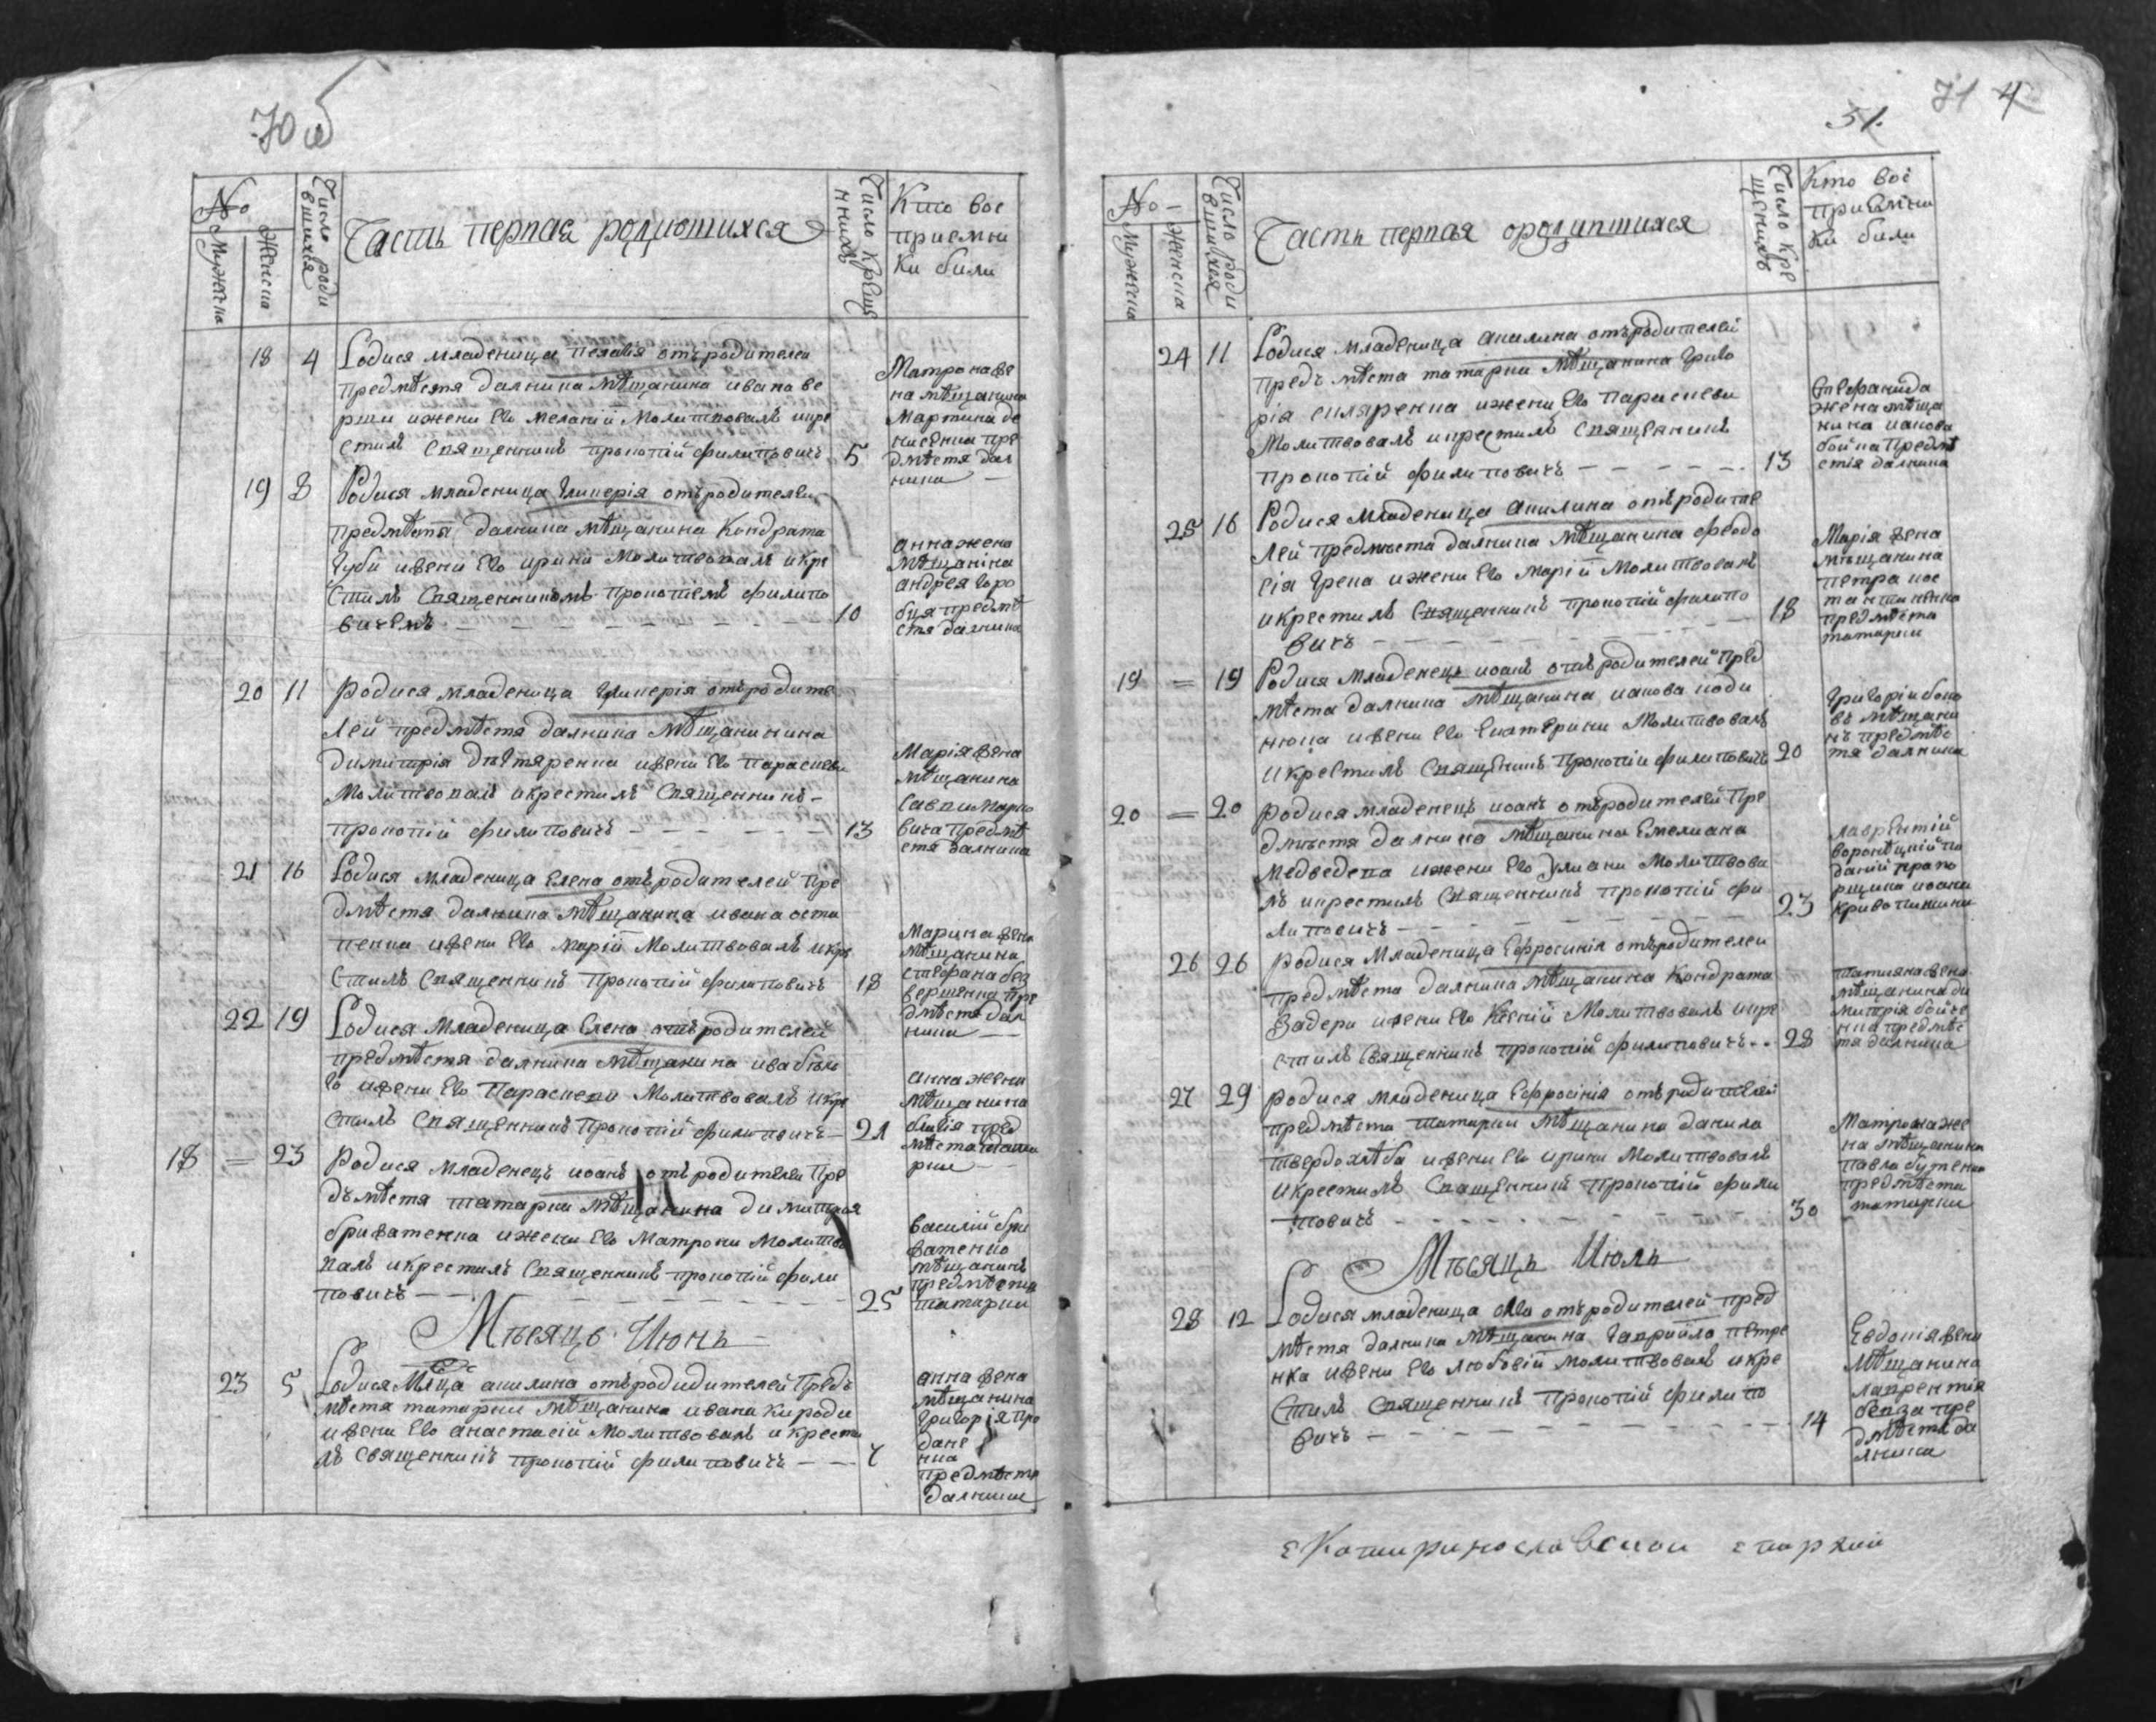 70 об
№
Мужеска
Женска
Число роди
вшихся
Часть первая родющихся
Число креще
нних
Кто вос
приемни
ки были
18 4 Родися младеница Пелагія отъ родителей
предмѣстя далника мѣщанина ивана ве
ржи и жени его меланій Молитвовалъ и кре
стилъ Священникъ прокопій филиповичъ 5
Матрона же
на мѣщанина
Мартина де
нисенка пре
дмѣстя дал
ника
19 8 Родися младеница Гликерія отъ родителей
предмѣстя далника мѣщанина Кондрата
Губи и жени его ирини Молитвовалъ и кре
стилъ Священникомъ прокопіемъ филипо
вичемъ 10
анна жена
мѣщаніна
андрея горо
бця предмѣ
стя далника
20 11 Родися младеница Гликерія отъ родите
лей предмѣстя далника мѣщанинина
димитрія дѣгтяренка и жени его параскеви
Молитвовалъ и крестилъ Священникъ
прокопій филиповичъ 13
Марія жена
мѣщанина
Савви Марко
вича предмѣ
стя далника
21 16 Родися младеница Елена отъ родителей пре
дмѣстя далника мѣщанина ивана оста
пенка и жени его маріи Молитвовалъ и кре
стилъ Священникъ прокопій филиповичъ 18
Марина жена
мѣщанина
стефана без
вершенка пре
дмѣстя дал
ника
22 19 Родися младеница Елена отъ родителей
предмѣстя далника мѣщанина ива бѣло
го и жени его Параскеви Молитвовалъ и кре
стилъ Священникъ прокопій филиповичъ 21
анна жени
мѣщанина
пред
мѣстя тата
рки
18 = 23 Родися младенецъ иоанъ отъ родителей пре
дъмѣстя татарки мѣщанина димитрія
бриватенка и жени его Матрони Молитво
валъ и крестилъ Священникъ прокопій фили
повичъ 25
василій бри
ватенко
мѣщанинъ
предмѣстя
татарки
Мѣсяцъ Июнь
23 5 Родися Мл҃ца акилина отъ родидителей предъ
мѣстя татарки мѣщанина ивана кироди
и жени его анастасій Молитвовалъ и крести
лъ Священникъ прокопій филиповичъ 7
анна жена
мѣщанина
Григорія про
дане
нка
предмѣстя
далника
71 4
51.
№
Мужеска
Женска
Число роди
вшихся
Часть первая ородившихся
Число кре
щенихъ
Кто вос
приемни
ки били
24 11 Родися младеница акилина отъ родителей
предъ мѣста татарки мѣщанина Григо
рія скляренка и жени его Параскеви
Молитвовалъ и крестилъ Священникъ
прокопій филиповичъ 13
Стефанида
жена мѣща
нина иакова
бойка предмѣ
стія далника
25 16 Родися младеница акилина отъ родите
лей предмѣста далника мѣщанина феодо
сія Грека и жени его Маріи Молитвовалъ
и крестилъ Священникъ прокопій филипо
вичъ 18
Марія жена
мѣщанина
петра кос
тантиненка
предмѣста
татарки
19 = 19 Родися младенецъ иоанъ отъ родителей пред
мѣста далника мѣщанина иакова коди
нюка и жени его Екатерини Молитвовалъ
и крестилъ Священикъ прокопій филиповичъ 20
Григорій боко
въ мѣщани
нъ предмѣс
тя далника
20 = 20 Родися младенецъ иоанъ отъ родителей пре
дмѣстя далника мѣщанина Емелиана
медведева и жени его Улиани Молитвова
лъ и крестилъ Священникъ прокопій фи
липовичъ 23
лаврентій
воронецкій по
даній прапо
рщика иоана
кривопишини
26 26 Родися младеница Ефросинія отъ родителей
предмѣста далника мѣщанина Кондрата
Задери и жени его Ксеній Молитвовалъ и кре
стилъ Священникъ прокопій филиповичъ 28
татияна жена
мѣщанина ди
митрія бойче
нка предмѣс
тя далника
27 29 Родися младеница Ефросінія отъ родителей
предмѣстя татарки мѣщанина данила
твердохлѣба и жени его ирини Молитвовалъ
и крестилъ Священникъ прокопій фили
повичъ 30
Матрона же
на мѣщанина
павла бутенка
предмѣста
татарки
Мѣсяцъ Июль
28 12 Родися младеница отъ родителей пред
мѣстя далника мѣщанина гавриила петре
нка и жени его любовій Молитвовалъ и кре
стилъ Священникъ прокопій филипо
вичъ 14
Евдокія жена
мѣщанина
лаврентія
пре
дмѣстя да
лника
Екатиринославской епархии